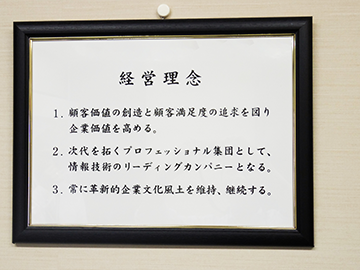 経営理念
1. 顧客価値の創造と顧客満足度の追求を図り
企業価値を高める。
2. 次代を拓くプロフェッショナル集団として、
情報技術のリーディングカンパニーとなる。
3. 常に革新的企業文化風土を維持、継続する。